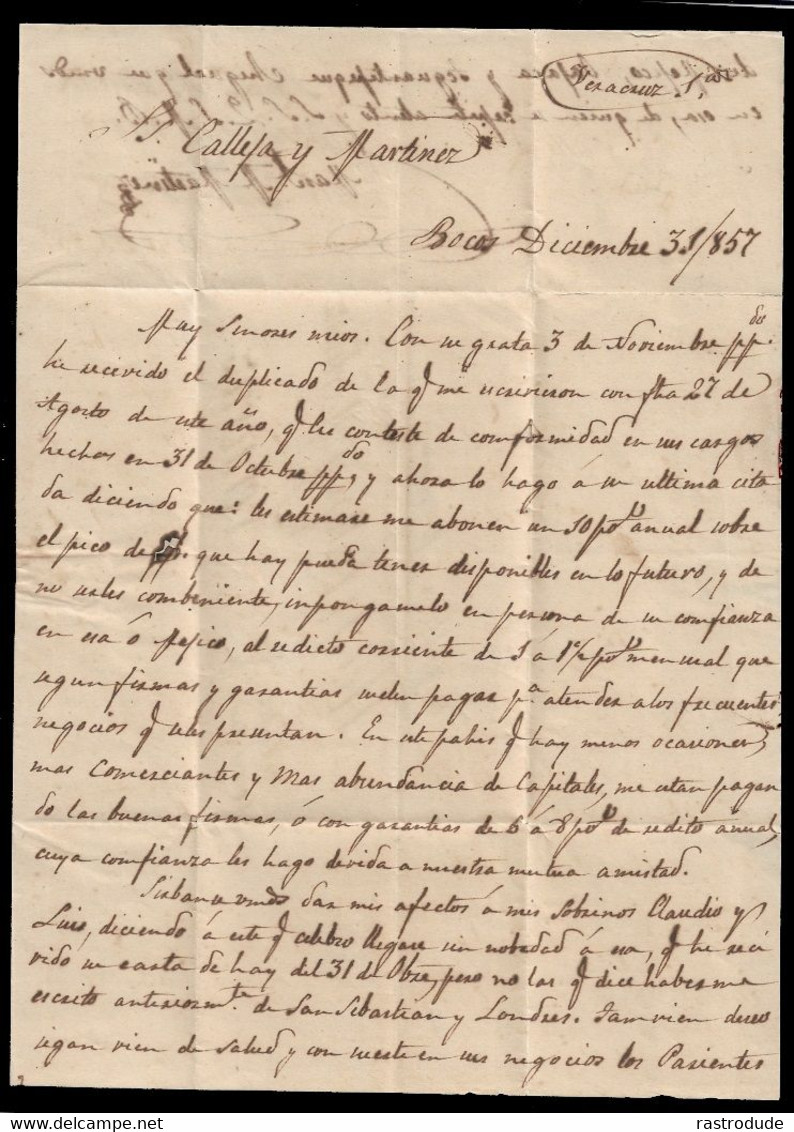 Veracruz S.res
S.S. Calleja y Martinez
Bocos Diciembre 31/857
Muy Sinores mios. Con su grata 3 de Noviembre pp.do
he recivido el duplicado de la q̃ me escrivieron con fha 27 de
Agosto de este año, q̃ les conteste de comformidad en sus cargos
hechos en 31 de Octubre pp.do, y ahora lo hago á su ultima cita
da diciendo que: les estimare me abonen un 10 p% anual sobre
el pico de que hay pueda tener disponibles en lo futuro, y de
no serles combeniente, inpongamelo en persona de su comfianza
en esa ó Mejico, al redicto corriente de 1 á 1½ p% mensual que
segun firmas y garantias suelen pagar p.a atender a los frecuentes
negocios q̃ seles presentan. En este pahis q̃ hay menos ocasiones,
mas Comerciantes y Mas abundancia de Capitales, me estan pagan
do las buenas firmas, ó con garantias de 6 á 8 p% de redito anual,
cuya comfianza les hago devida a nuestra mutua amistad.
Sirbanse vmds dar mis afectos á mis Sobrinos Claudio y
Luis, diciendo á este q̃ celebro llegase sin nobedad á esa, q̃ he reci
vido su carta de hay del 31 de Obre, pero no las q̃ dice haberme
escrito anteriorm.te de San Sebastian y Londres. Tamvien deseo
sigan vien de Salud y con suerte en sus negocios los Parientes
de Mejico, y que vmds
en esa, de quien se repite atento S.S.
Man.l Martinez
rastrodude